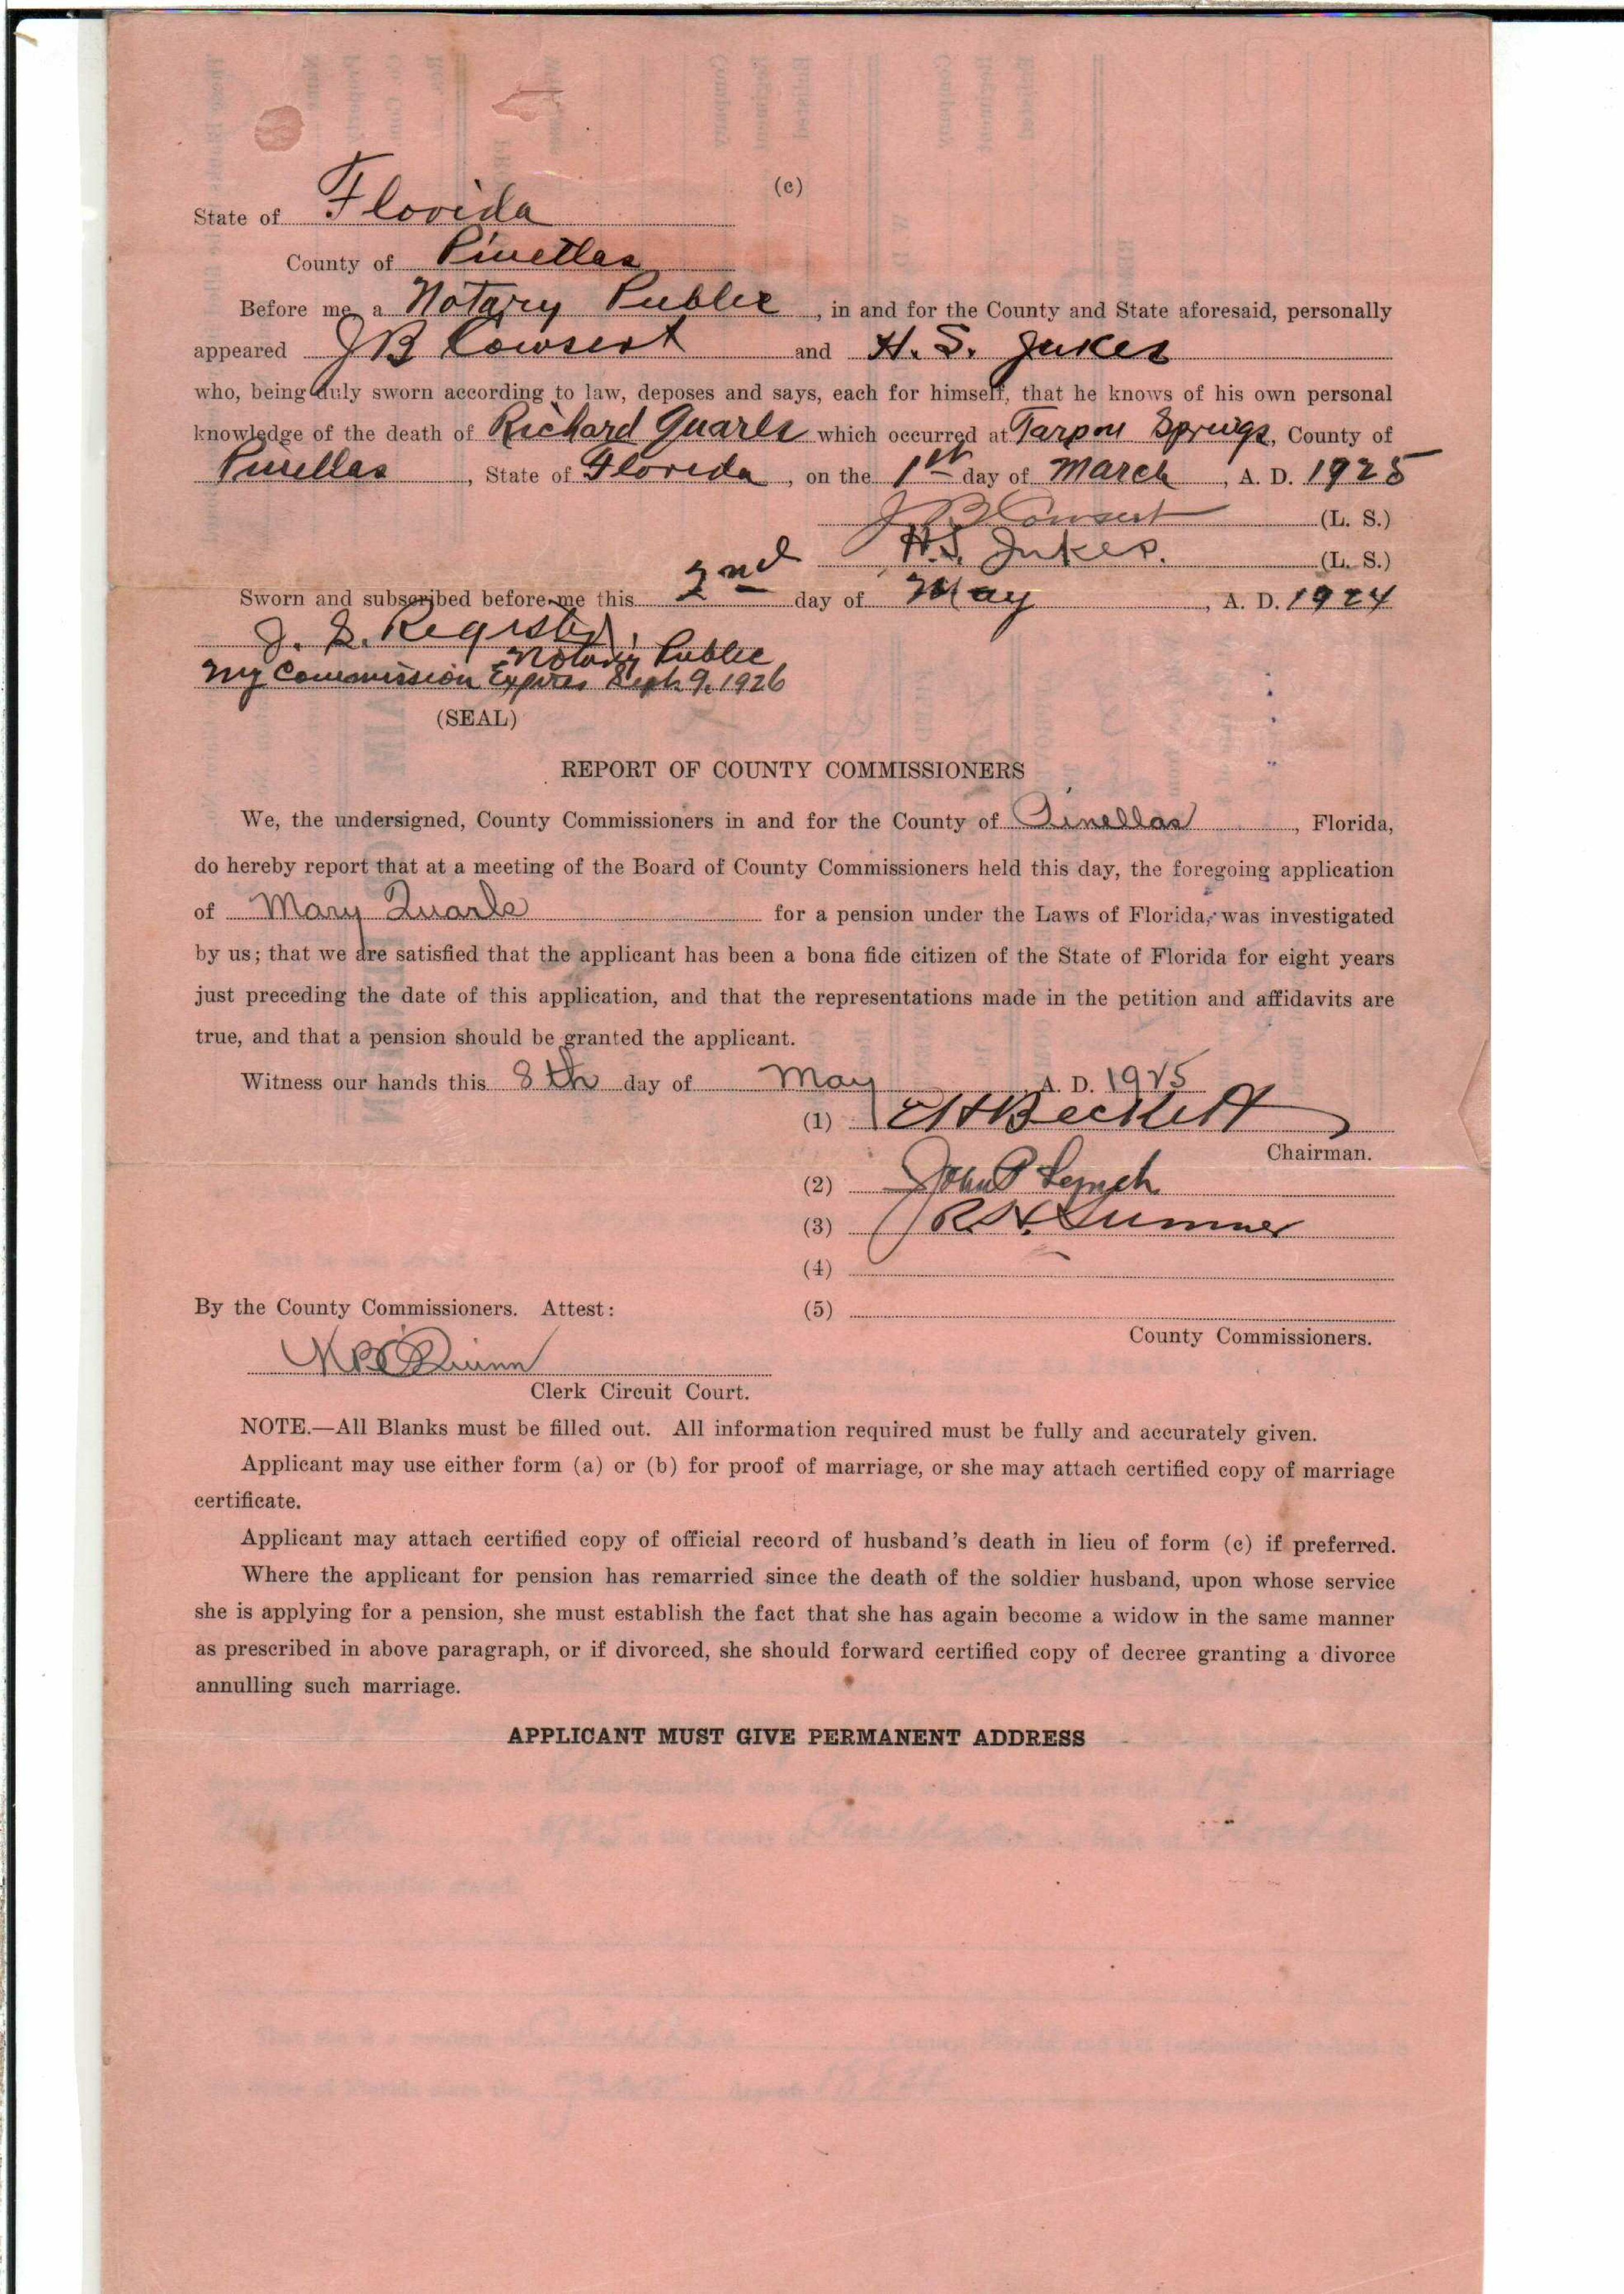 (c)
State of Florida
County of Pinellas
Before me a Notary Public, in and for the County and State aforesaid, personally
appeared JB Cowsert and H. S. Jukes
who, being duly sworn according to law, deposes and says, each for himself, that he knows of his own personal
knowledge of the death of Richard Quarls which occurred at Tarpon Springs, County of
Pinellas, State of Florida, on the 1st day of March, A. D. 1925
J B Cowsert (L. S.)
H.S. Jukes. (L. S.)
Sworn and subscribed before me this 2nd day of May, A. D. 1924
Register,
Notary Public
My Commission Expires Sept. 9. 1926
(SEAL)
REPORT OF COUNTY COMMISSIONERS
We, the undersigned, County Commissioners in and for the County of Pinellas, Florida,
do hereby report that at a meeting of the Board of County Commissioners held this day, the foregoing application
of Mary Quarls for a pension under the Laws of Florida, was investigated
by us; that we are satisfied that the applicant has been a bona fide citizen of the State of Florida for eight years
just preceding the date of this application, and that the representations made in the petition and affidavits are
true, and that a pension should be granted the applicant.
Witness our hands this 8th day of May A. D. 1925
(1) Beckett
Chairman.
(2) John P Lynch
(3) Sumner
(4)
By the County Commissioners. Attest: (5)
County Commissioners.
Quinn
Clerk Circuit Court.
NOTE.—All Blanks must be filled out. All information required must be fully and accurately given.
Applicant may use either form (a) or (b) for proof of marriage, or she may attach certified copy of marriage
certificate.
Applicant may attach certified copy of official record of husband's death in lieu of form (c) if preferred.
Where the applicant for pension has remarried since the death of the soldier husband, upon whose service
she is applying for a pension, she must establish the fact that she has again become a widow in the same manner
as prescribed in above paragraph, or if divorced, she should forward certified copy of decree granting a divorce
annulling such marriage.
APPLICANT MUST GIVE PERMANENT ADDRESS